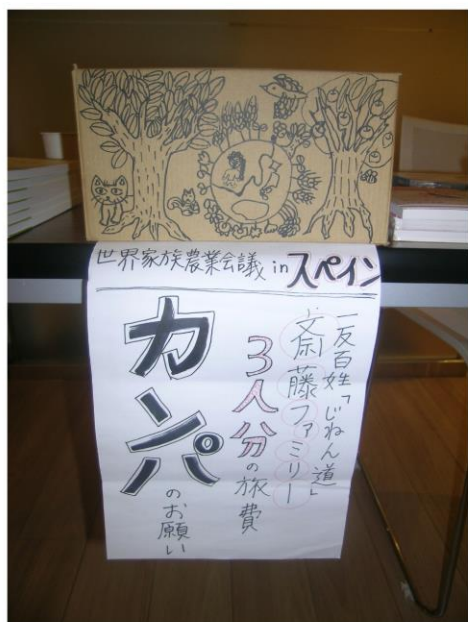 世界家族農業会議 in スペイン
一反百姓「じねん道」
斎藤ファミリー
3人分の旅費
カンパのお願い